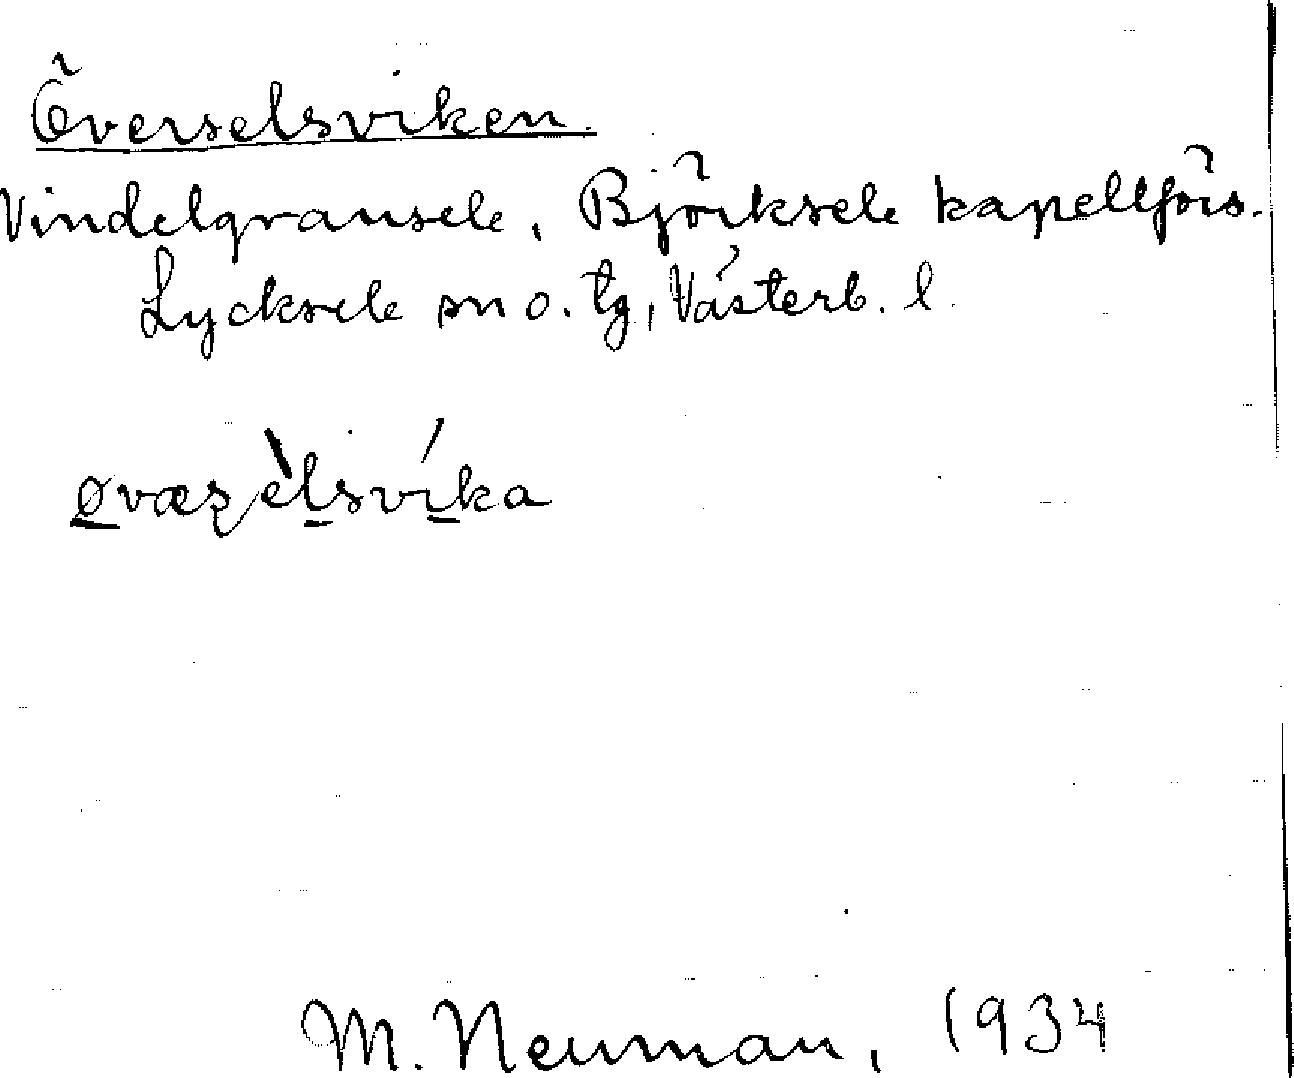 Överselsviken.
Vindelgransele, Björksele kapellförs.
Lycksele sn o. tg, Västerb. l.
øvæʂèlsvíka
M. Neuman, 1934